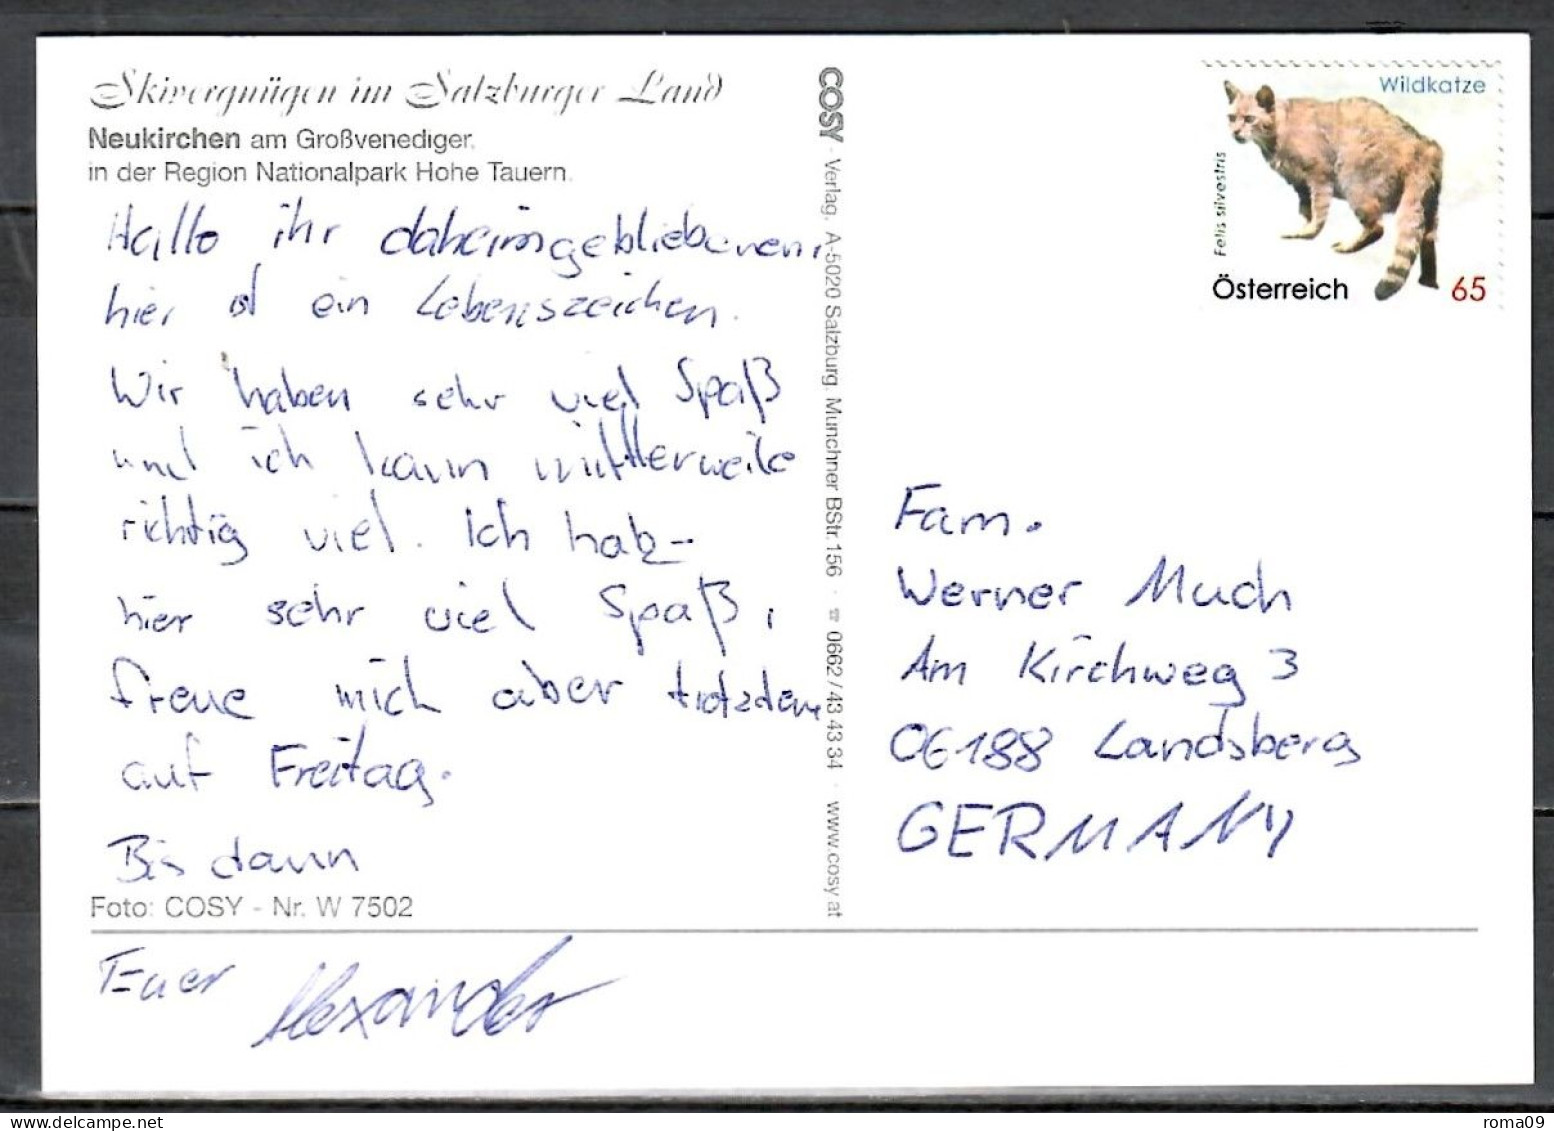 Skivergnügen im Salzburger Land
Neukirchen am Großvenediger,
in der Region Nationalpark Hohe Tauern.
Hallo ihr daheimgebliebenen,
hier ist ein Lebenszeichen.
Wir haben sehr viel Spaß
und ich kann mittlerweile
richtig viel. Ich habe
hier sehr viel Spaß,
freue mich aber trotzdem
auf Freitag.
Bis dann
Foto: COSY - Nr. W 7502
Euer Alexander
COSY · Verlag, A-5020 Salzburg, Munchner BStr. 156 · ☎ 0662/43 43 34 · www.cosy.at
Wildkatze
Felis silvestris
Österreich 65
Fam.
Werner Much
Am Kirchweg 3
06188 Landsberg
GERMANY
roma09